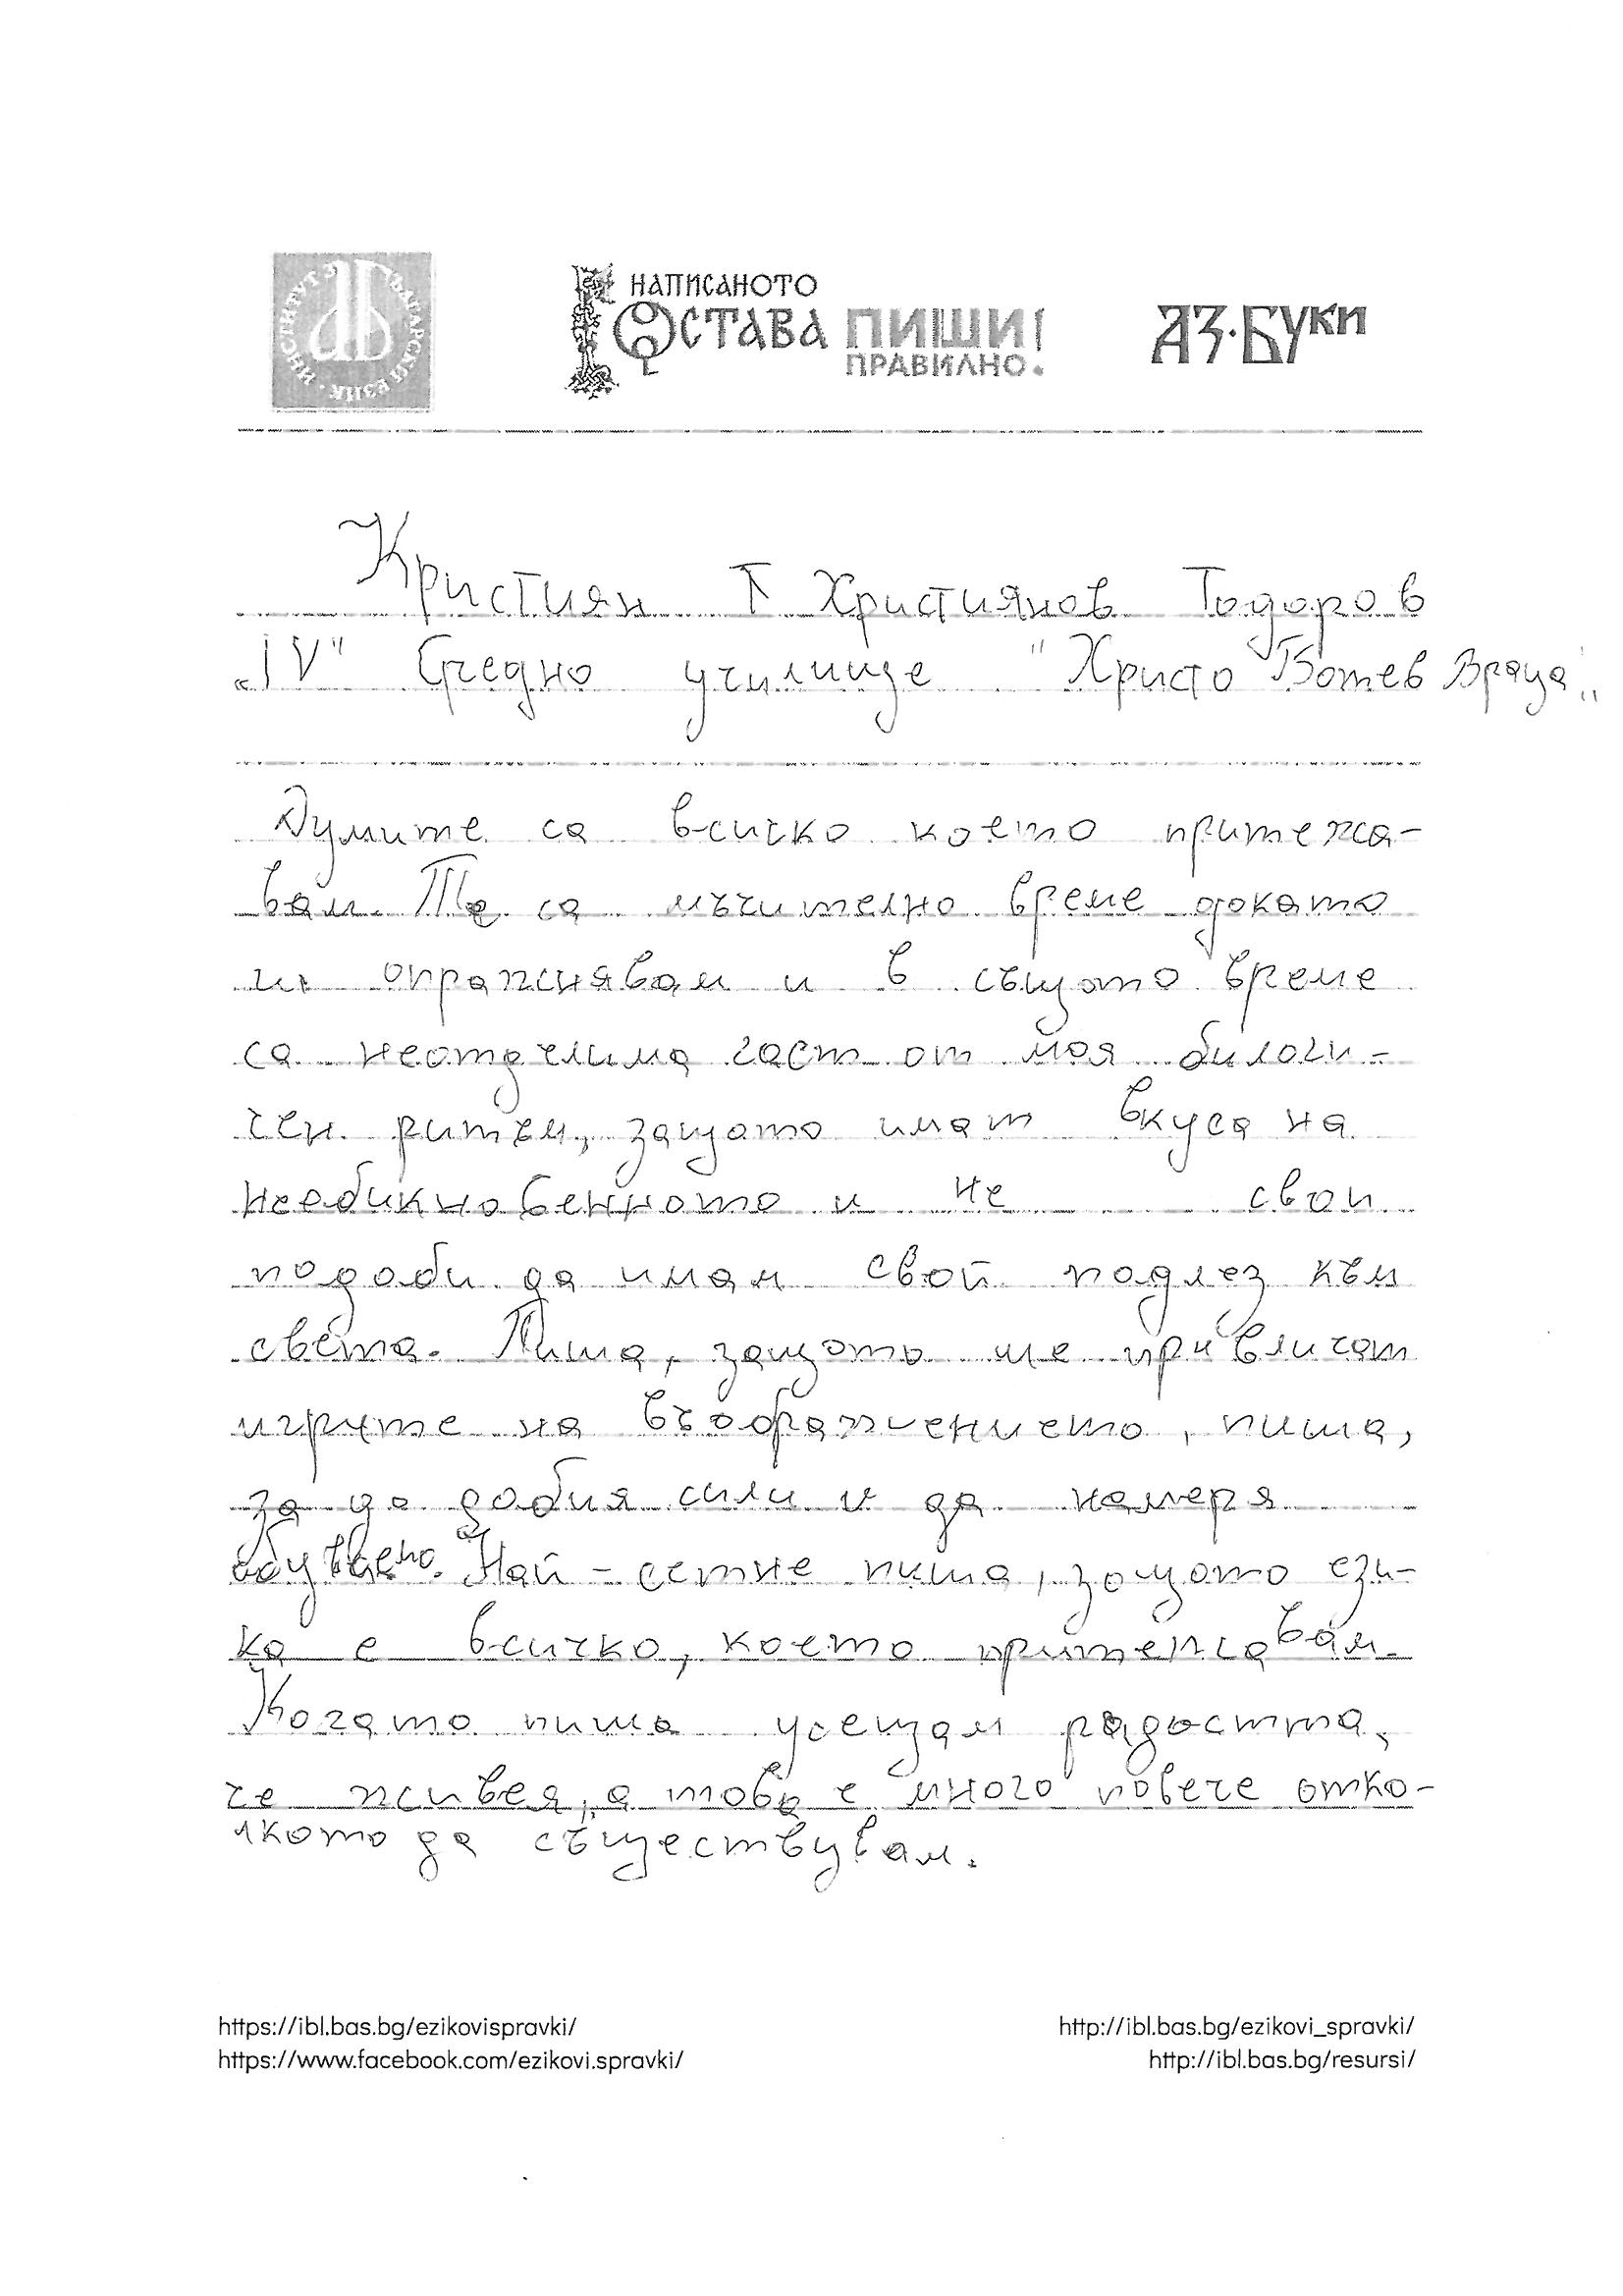 ИНСТИТУТ ЗА БЪЛГАРСКИ ЕЗИК
НАПИСАНОТО
ОСТАВА ПИШИ!
ПРАВИЛНО.
АЗ·БУКИ
Кристиян Т Християнов Тодоров
„IV" Средно училище "Христо Ботев Враца„
Думите са всичко което притежа-
вам. Те са мъчително време докато
ги опражнявам и в същото време
са неотделима част от моя билоги-
чен ритъм, защото имат вкуса на
необикновенното и не свои
подоби да имам свой подлез към
света. Пиша, защото ме привличат
игрите на въображението, пиша,
за да добия сили и да намеря
Най-сетне пиша, защото ези-
ка е всичко, което притежавам.
Когато пиша усещам радостта,
че живея, а това е много повече отко-
лкото да съществувам.
https://ibl.bas.bg/ezikovispravki/ http://ibl.bas.bg/ezikovi_spravki/
https://www.facebook.com/ezikovi.spravki/ http://ibl.bas.bg/resursi/